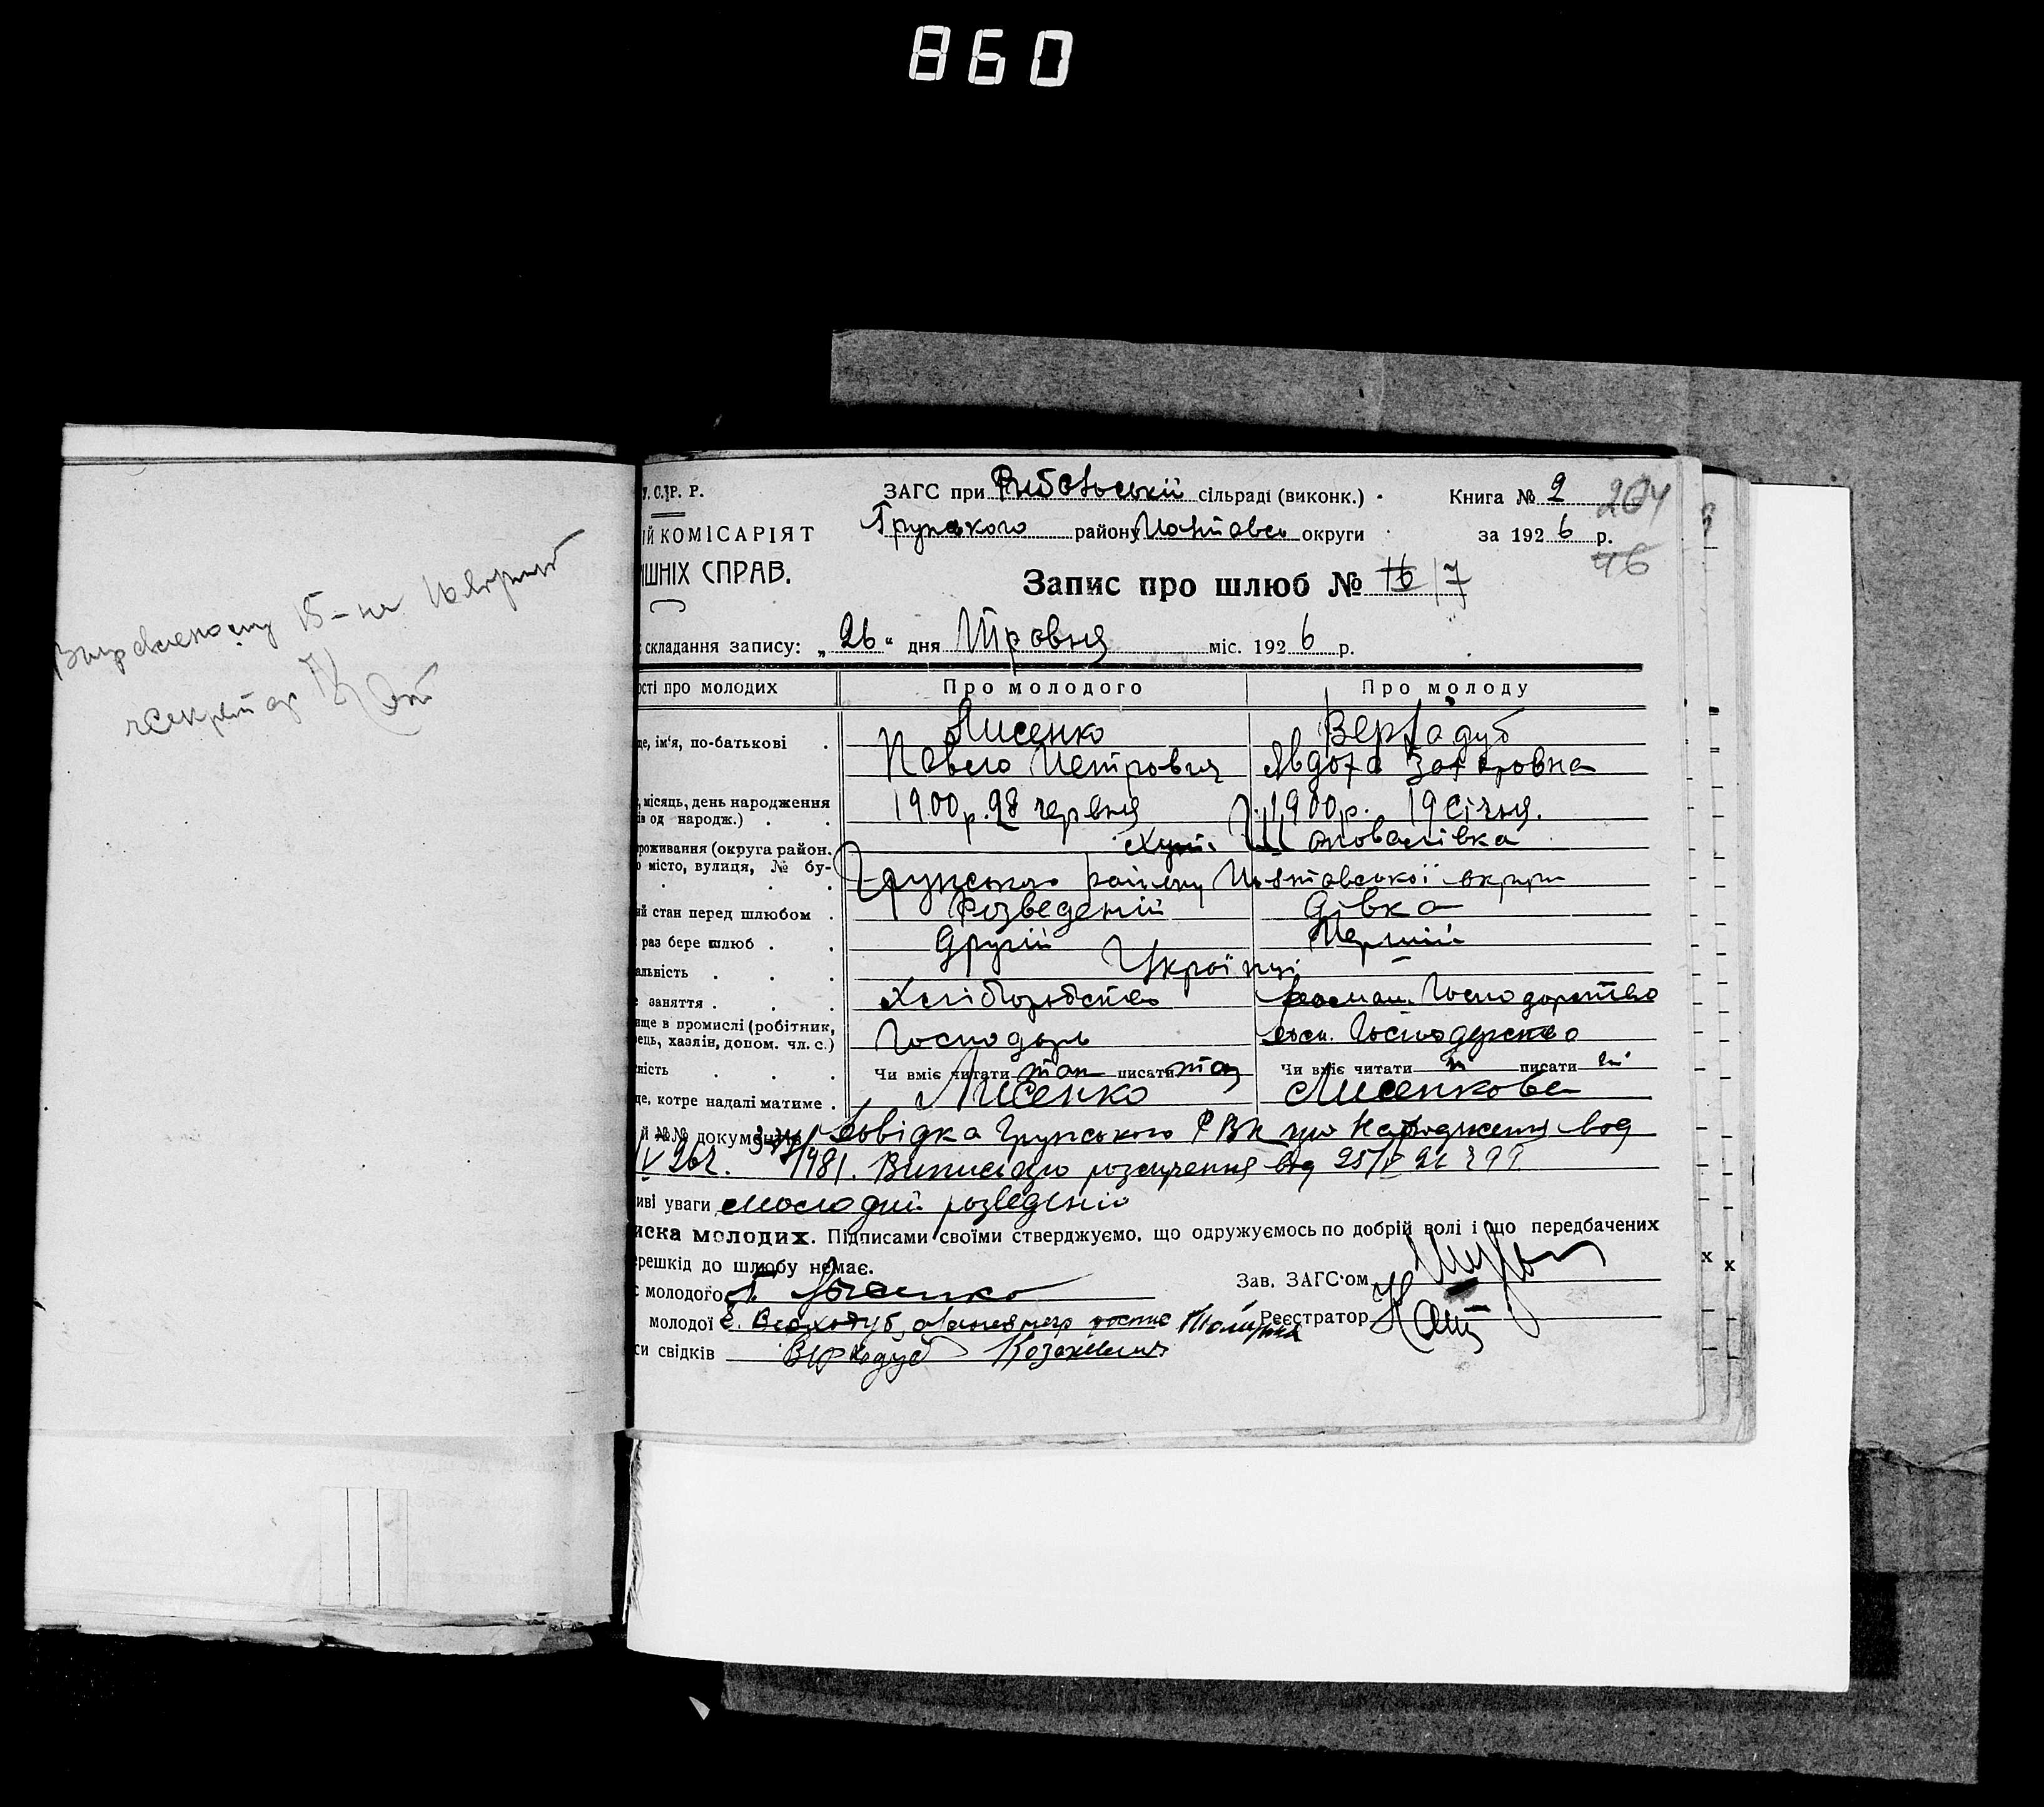 860
У.С.Р. Р.
ЗАГС при Рибальській сільраді (виконк.)
Книга № 2
204
ІЙ КОМІСАРІЯТ
Грунського району Полтавсь округи
за 1926 р.
46
ІШНІХ СПРАВ.
Запис про шлюб № 16 17
складання запису: „26“ дня Травня міс. 1926 р.
ості про молодих
Про молодого
Про молоду
ще, ім'я, по-батькові
Лисенко
Верходуб
Павло Петрович
Явдоха Захаровна
, місяць, день народження
ів од народж.)
1900 р. 28 червня
1900 р. 19 Січня.
роживання (округа район.
о місто, вулиця, № бу-
Хут. Шаповалівка
Грунського району Полтавської округи
ий стан перед шлюбом
Розведений
Дівка
раз бере шлюб
Другий
Перший
альність
Українці
е заняття
Хліборобство
Господорство
ище в промислі (робітник,
ець, хазяїн, допом. чл. с.)
Господарь
Господарство
ність
Чи вміє читати так писати так
Чи вміє читати ні писати ні
ще, котре надалі матиме
Лисенко
Лисенкова
й №№ документів
Довідка Грунського РВК про Народження вод
IV 26 г. 1981. Виписка про розлучення вод 25/V 26 г 99
иві уваги молодий розведений
иска молодих. Підписами своїми стверджуємо, що одружуємось по добрій волі і що передбачених
ерешкід до шлюбу немає.
Зав. ЗАГС'ом
с молодого П. Лисенко
Реєстратор
молодої Є. Верходуб
си свідків Верходуб
Виправленому 15-на
Секретар